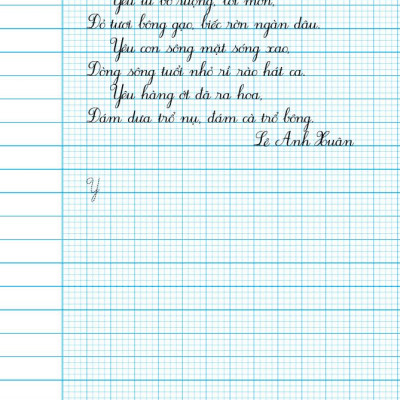 Yêu từ bờ ruộng, lối mòn,
Đỏ tươi bông gạo, biếc rờn ngàn dâu.
Yêu con sông mặt sóng xao,
Dòng sông tuổi nhỏ rì rào hát ca.
Yêu hàng ớt đã ra hoa,
Đám dưa trổ nụ, đám cà trổ bông.
Lê Anh Xuân
Y